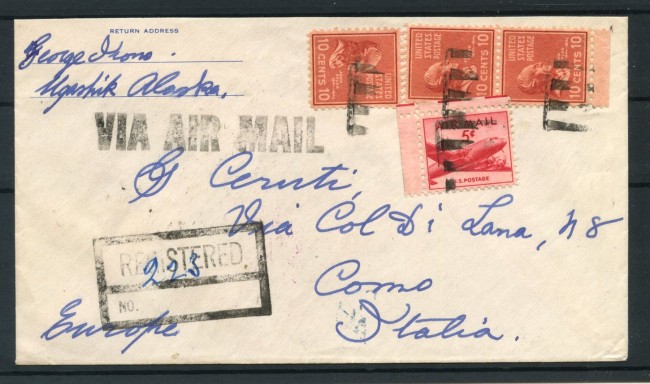 RETURN ADDRESS
George
Ugashik Alaska,
VIA AIR MAIL
10 CENTS 10
UNITED STATES POSTAGE
10 CENTS 10
UNITED STATES POSTAGE
10 CENTS 10
UNITED STATES POSTAGE
AIR MAIL
5¢
U.S. POSTAGE
G Ceruti,
Via Col Di Lana, N 8
Como
Italia.
REGISTERED
223
NO.
Europe